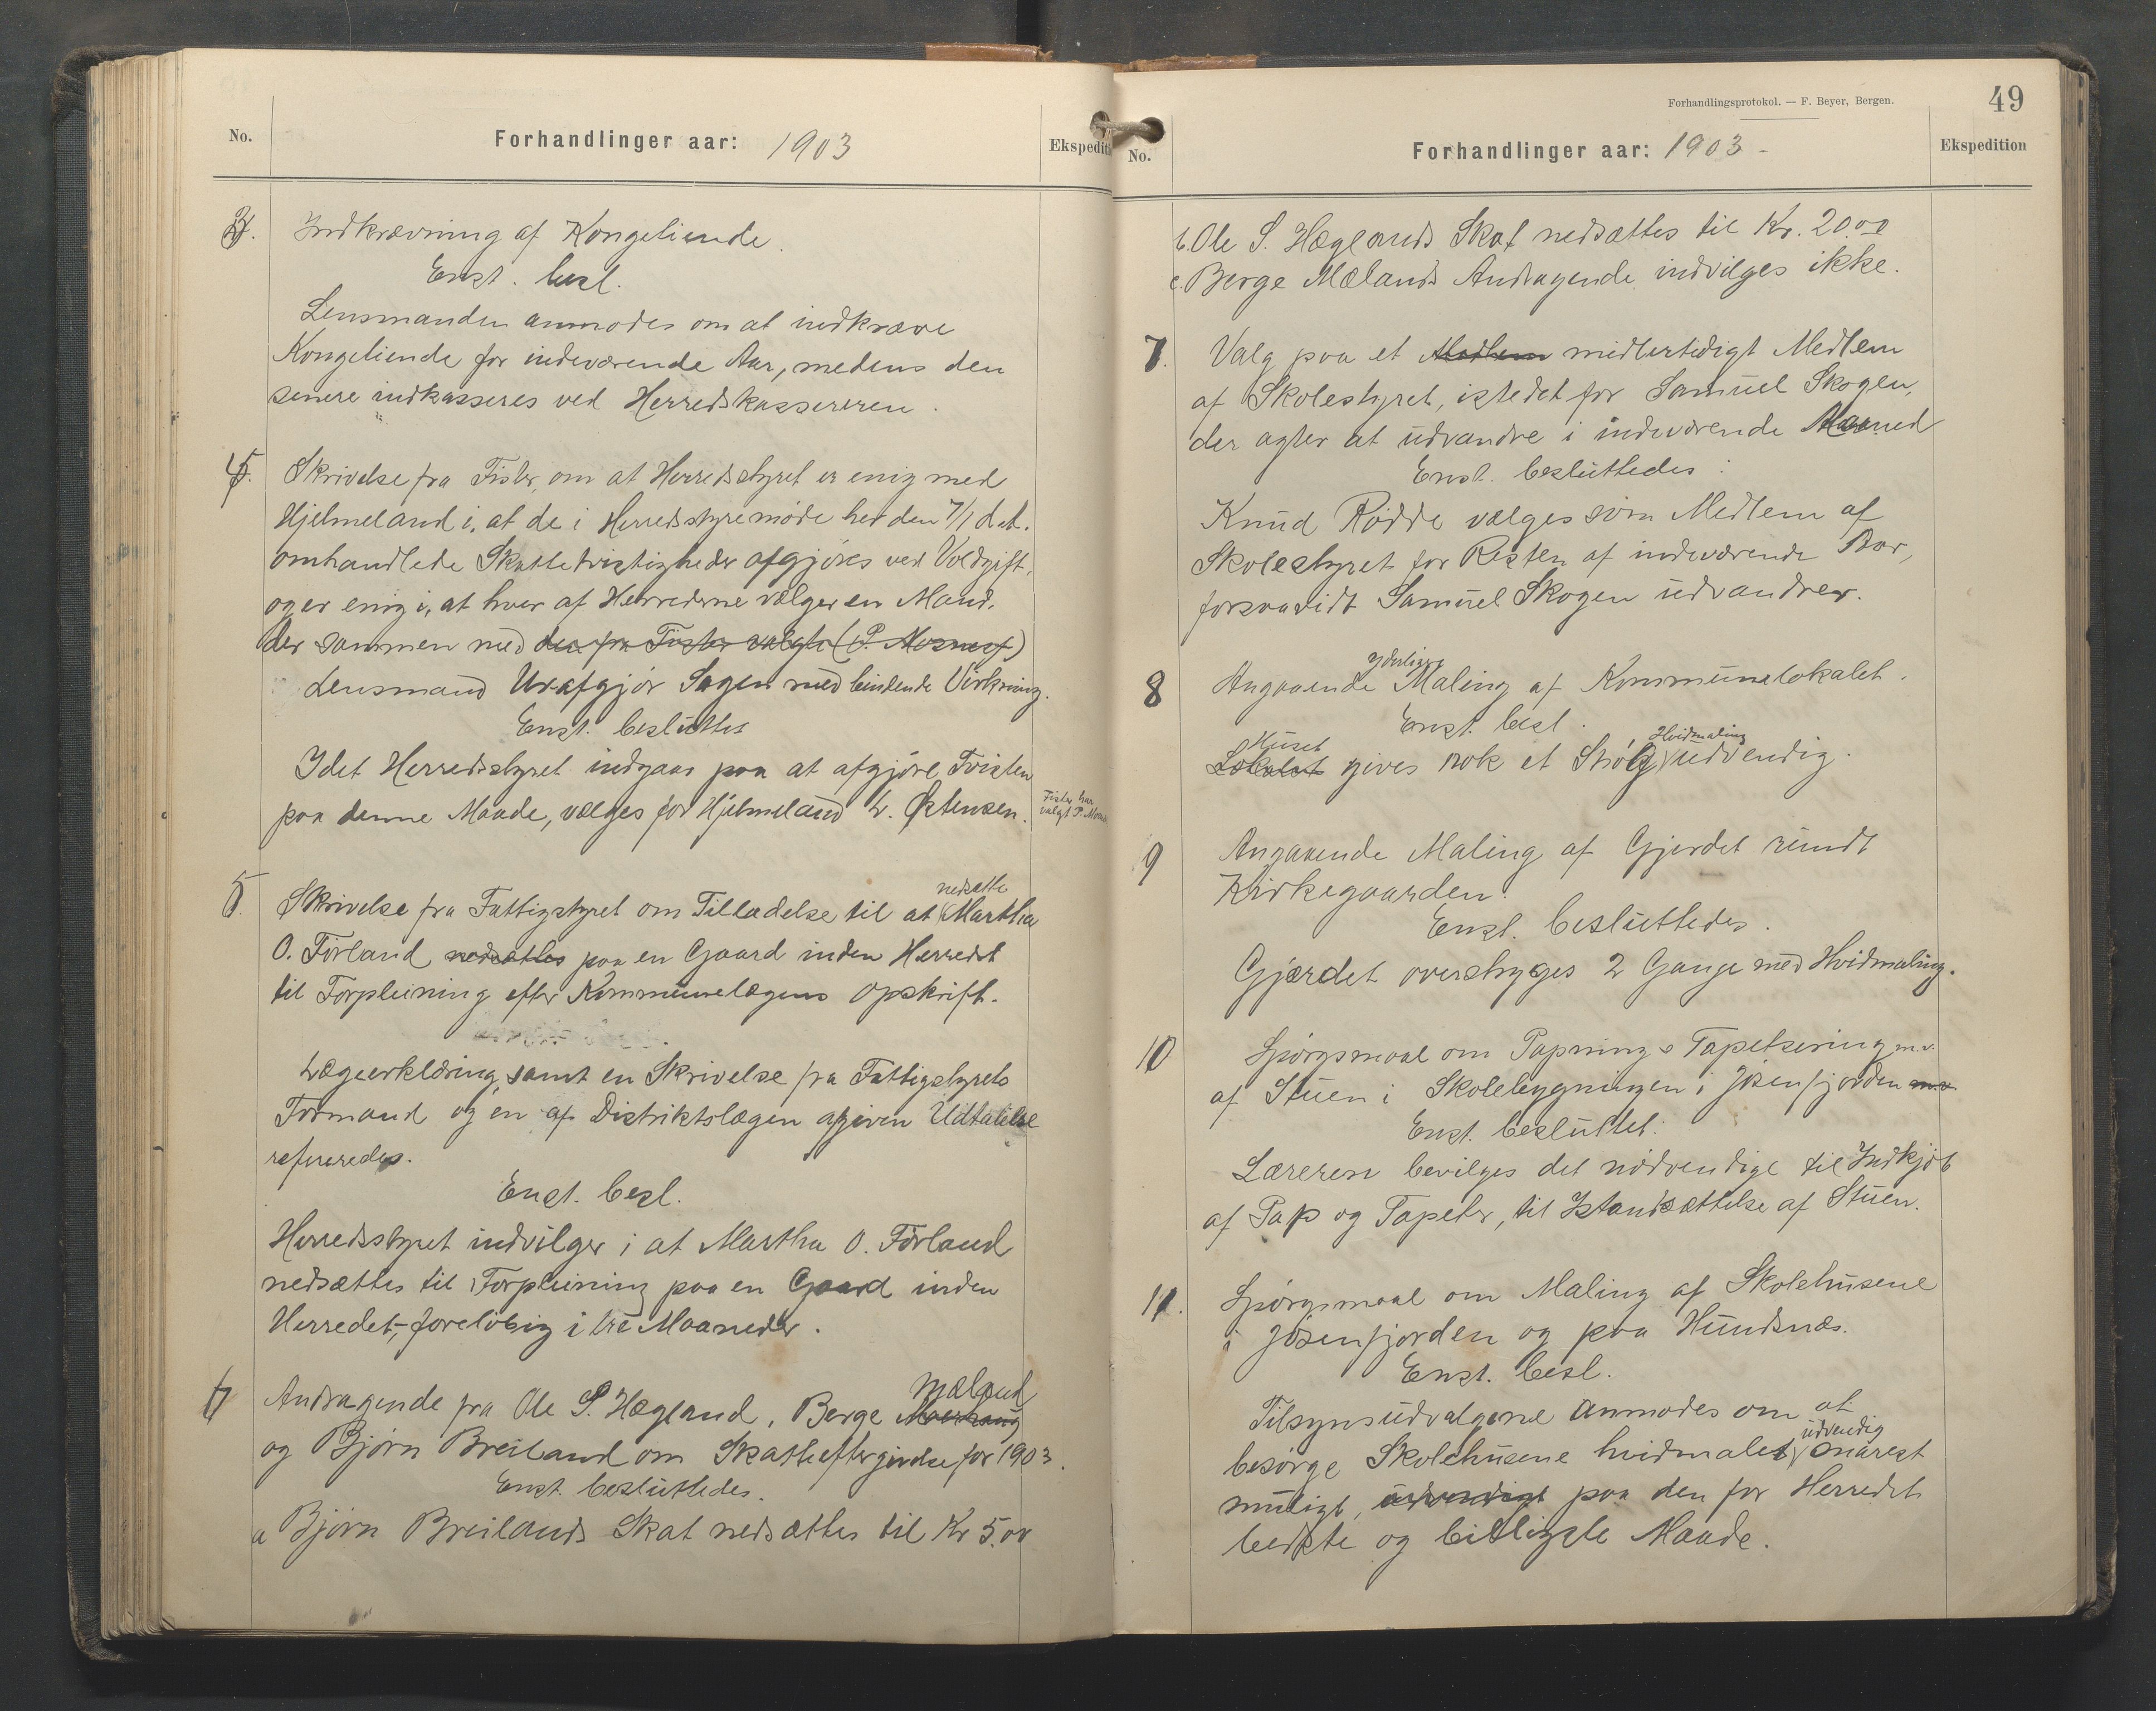 No.
Forhandlinger aar: 1903
Ekspediti
3.
Indkrævning af Kongetiende.
Enst. besl.
Lensmanden anmodes om at indkræve
Kongetiende for indeværende Aar, medens den
senere indkasseres ved Herredskassereren.
4.
Skrivelse fra Fister, om at Herredsstyret er enig med
Hjelmeland i, at de i Herredsstyremöde her den 7/1 d.A.
omhandlede Skattetvistigheder afgjöres ved Voldgift,
og er enig i, at hver af Herrederne vælger en Mand,
der sammen med den fra Fister valgte (P. Mosnes)
Lensmand Ur afgjör Sagen med bindende Virkning.
Enst. besluttet
Idet Herredsstyret indgaar paa at afgjöre Tvisten
paa denne Maade, vælges for Hjelmeland L. Østensen.
Fister har
valgt P. Mosnes
5.
Skrivelse fra Fattigstyret om Tilladelse til at nedsætte Martha
O. Förland nedsættes paa en Gaard inden Herredet
til Forpleining efter Kommunelægens Opskrift.
Lægeerklæring, samt en Skrivelse fra Fattigstyrets
Formand og en af Distriktslægen afgiven Udtalelse
refereredes.
Enst. besl.
Herredsstyret indvilger i at Martha O. Förland
nedsættes til Forpleining paa en Gaard inden
Herredet, forelöbig i tre Maaneder.
6
Andragende fra Ole S. Hægland, Berge Mæland
og Björn Breiland om Skatteeftergivelse for 1903.
Enst. besluttedes.
a Björn Breilands Skat nedsættes til Kr 5.00
Forhandlingsprotokol. — F. Beyer, Bergen.
49
No.
Forhandlinger aar: 1903 -
Ekspedition
b. Ole S. Hæglands Skat nedsættes til Kr. 20.00
c. Berge Mælands Andragende indvilges ikke.
7.
Valg paa et Medlem midlertidigt Medlem
af Skolestyret, istedet for Samuel Skogen,
der agter at udvandre i indeværende Maaned
Enst. besluttedes:
Knud Rödde vælges som Medlem af
Skolestyret for Resten af indeværende Aar,
forsaavidt Samuel Skogen udvandrer.
8
Angaaende yderligere Maling af Kommunelokalet.
Enst. besl.
Lokalet Huset gives nok et Strög Hvidmaling udvendig.
9
Angaaende Maling af Gjerdet rundt
Kirkegaarden.
Enst. besluttedes.
Gjærdet overstryges 2 Gange med Hvidmaling.
10
Spörgsmaal om Papning & Tapetsering m.v.
af Stuen i Skolebygningen i Jösenfjorden m.v.
Enst. besluttet:
Læreren bevilges det nödvendige til Indkjöb
af Pap og Tapeter, til Istandsættelse af Stuen.
11.
Spörgsmaal om Maling af Skolehusene
i Jösenfjorden og paa Hundsnæs.
Enst. besl.
Tilsynsudvalgene anmodes om at
besörge Skolehusene hvidmalet udvendig snarest
muligt, udvendigt paa den for Herredet
bedste og billigste Maade.